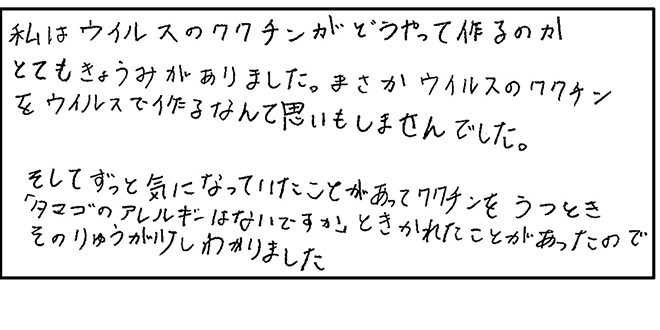 私はウイルスのワクチンがどうやって作るのか
とてもきょうみがありました。まさかウイルスのワクチン
をウイルスで作るなんて思いもしませんでした。
そしてずっと気になっていたことがあってワクチンをうつとき
「タマゴのアレルギーはないですか」ときかれたことがあったので
そのりゆうが少しわかりました